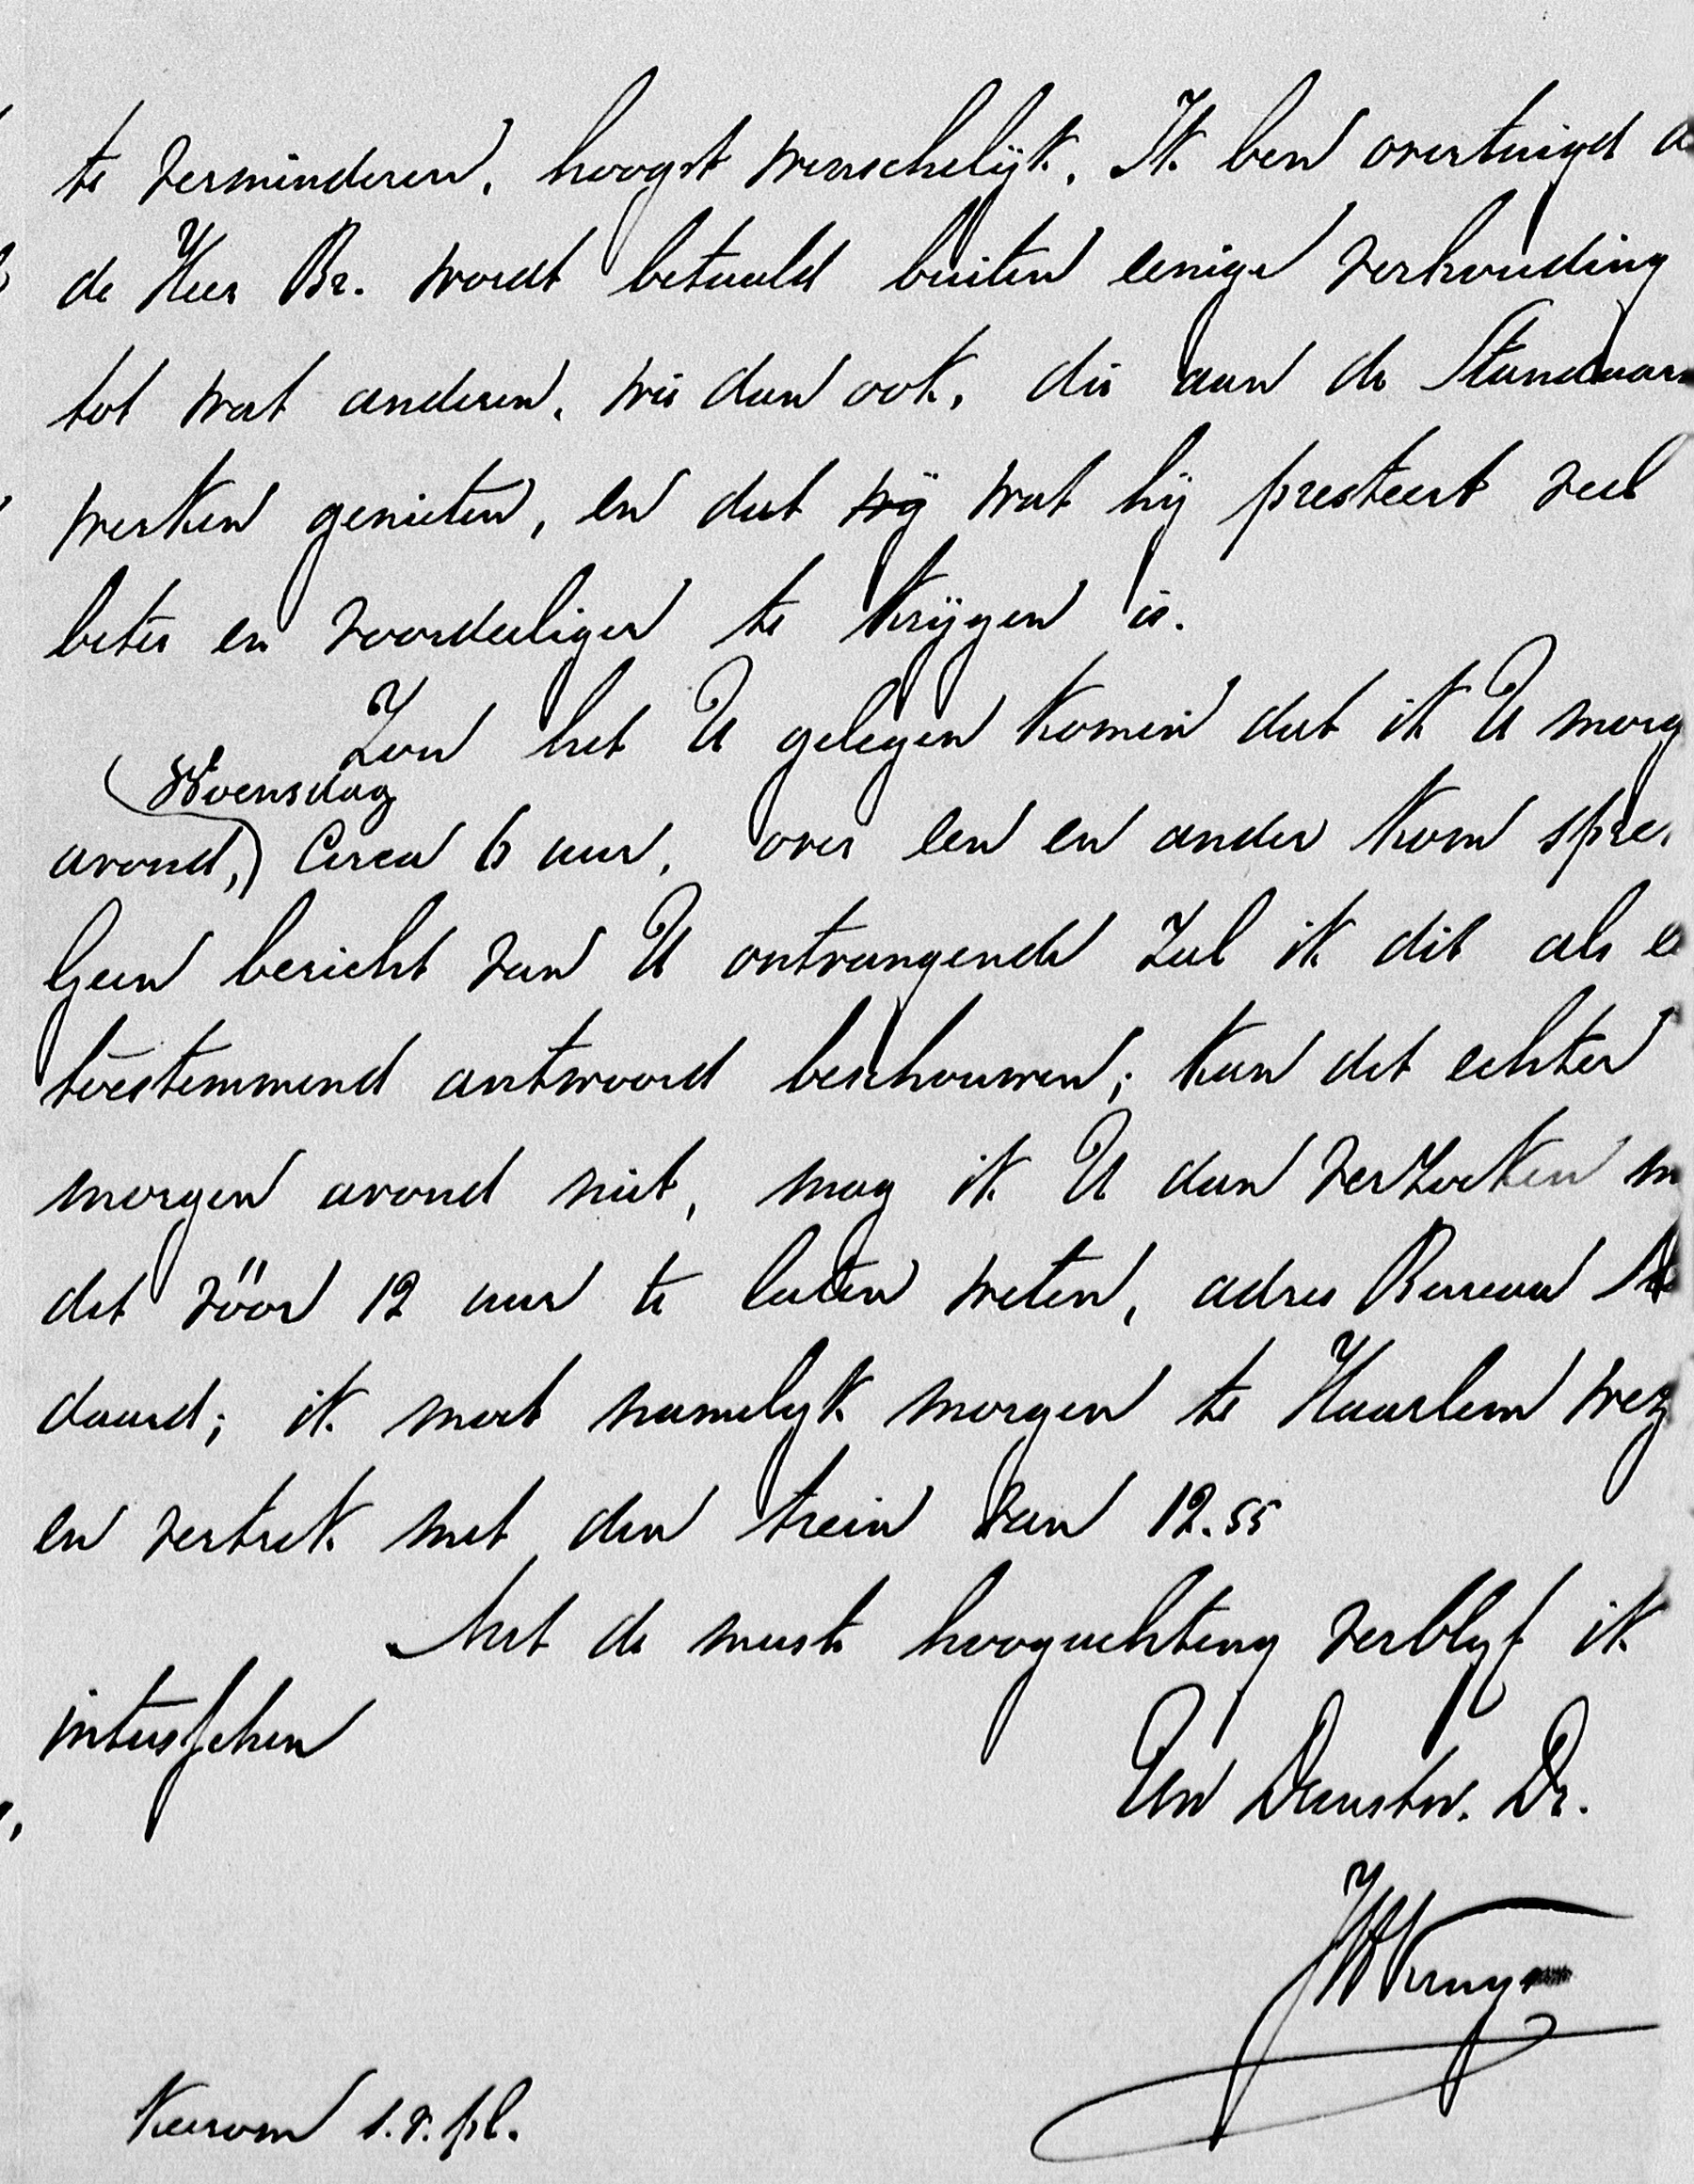 te verminderen, hoogst wenschelijk. Ik ben overtuigd
de Heer Br. wordt betaald buiten eenige verhouding
tot wat anderen, wie dan ook, die aan de Standaar
werken genieten, en dat wij wat hij presteert veel
beter en voordeeliger te krijgen is.
Zou het U gelegen komen dat ik U morg
(Woensdag
avond,) circa 6 uur, over een en ander kom spre
Geen bericht van U ontvangende zal ik dit als e
toestemmend antwoord beschouwen; kan dit echter
morgen avond niet, mag ik U dan verzoeken m
dit vóór 12 uur te laten weten, adres Bureau
daard; ik moet namelijk morgen te Haarlem wez
en vertrek met den trein van 12.55
Met de meeste hoogachting verblijf ik
intusschen
Uw Dienstw. Dr.
Keerom s.v.pl.